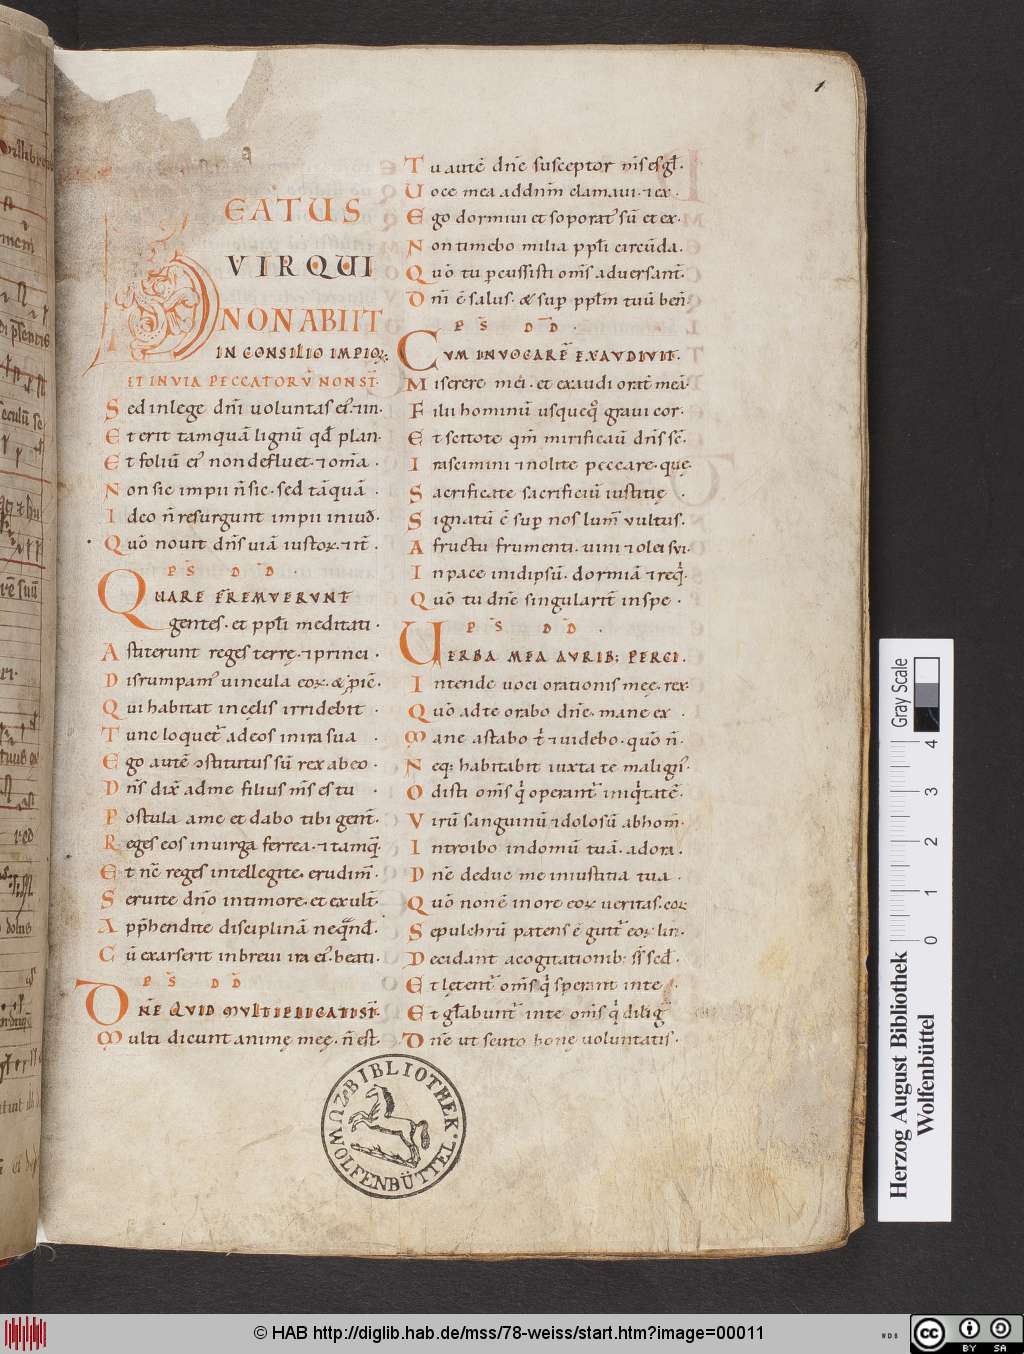 1
BEATUS
VIR QUI
NON ABIIT
IN CONSILIO IMPIOꝜ:
ET IN VIA PECCATORṼ NON ST̃·
Sed in lege dñi uoluntas ei᷒·⁊ in·
Et erit tamquā lignū qđ plan·
Et foliū ei᷒ non defluet·⁊ om̄a·
Non sic impii ñ sic·sed tāquā·
Ideo ñ resurgunt impii in iuđ·
Qūo nouit dñs uiā iustoꝝ·⁊ it̃·
P̄S D̄D·
QUARE FR̄EMVERVNT
gentes·et ppłi meditati·
Astiterunt reges terrę·⁊ princi·
Disrumpam᷒ uincula eoꝝ·& ꝓiē·
Qui habitat in celis irridebit·
Tunc loquet᷑ ad eos in ira sua·
Ego autē ↄstitutus sū rex ab eo·
Dñs dix̄ ad me filius m̄s es tu·
Postula a me et dabo tibi gent̄·
Reges eos in uirga ferrea·⁊ tamq̄·
Et nc̄ reges intellegite·erudim̄·
Seruite dño in timore·et exult̄·
Apphendite disciplinā neqn̄d·
Cū exarserit in breui ira ei᷒·beati·
P̄S D̄D
DÑE QVID MVLTIPLICATI ST̃·
Multi dicunt animę meę·ñ est·
Tu autē dñe susceptor m̄s es gł·
Uoce mea ad dñm clamaui·⁊ ex·
Ego dormiui et soporat᷒ sū et ex·
Non timebo milia ppłi circūda·
Qūo tu percussisti om̄s aduersant̄·
Dñi ē salus·& sup ppłm tuū ben̄·
P̄S D̄D·
CVM INVOCARĒ EXAVDIVIT·
Miserere mei·et exaudi orat̄ meā·
Filii hominū usquequo graui cor·
Et scitote qm̄ mirificauū dñs sc̄·
Irascimini ⁊ nolite peccare·quę·
Sacrificate sacrificiū iustitię·
Signatū ē sup nos lum̄ vultus·
A fructu frumenti·uini ⁊ olei sui·
In pace in idipsū·dormiā ⁊ req·
Qūo tu dñe singularit̄ in spe·
P̄S D̄D·
UERBA MEA AVRIB; PERCI·
Intende uoci orationis meę·rex·
Qūo ad te orabo dñe·mane ex·
Mane astabo t̄ ⁊ uidebo·qūo ñ·
Neq; habitabit iuxta te malign᷒·
Odisti om̄s q operant᷑ iniqtatē·
Virū sanguinū ⁊ dolosū abhom̄·
Introibo in domū tuā·adora·
Dñe deduc me in iustitia tua·
Qūo non ē in ore eoꝝ ueritas·coꝝ
Sepulchrū patens ē gutt᷑ eoꝝ lin·
Decidant a cogitationib; s̄s sed·
Et lętent᷑ om̄s q sperant in te
Et głabunt᷑ in te om̄s q dilig᷑
Dñe ut scuto bonę uoluntatis·
BIBLIOTHEK·
ZU WOLFENBÜTTEL·
Gray Scale
0 1 2 3 4
Herzog August Bibliothek
Wolfenbüttel
© HAB http://diglib.hab.de/mss/78-weiss/start.htm?image=00011
cc BY SA